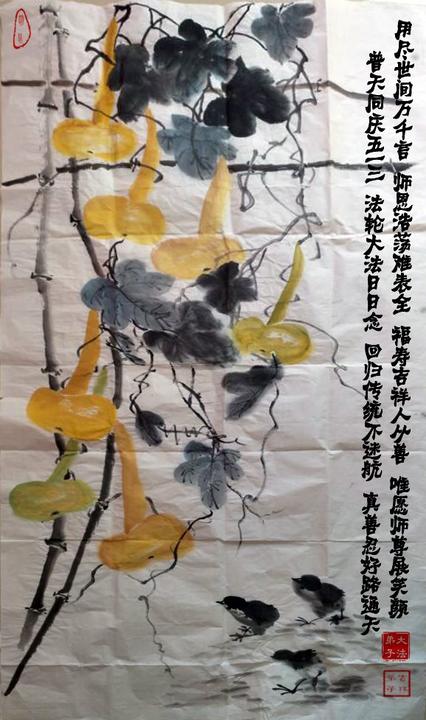 用尽世间万千言 师恩浩荡难表全 福寿吉祥人心善 唯愿师尊展笑颜
普天同庆五一三 法轮大法日日念 回归传统不迷航 真善忍好路通天
大法弟子